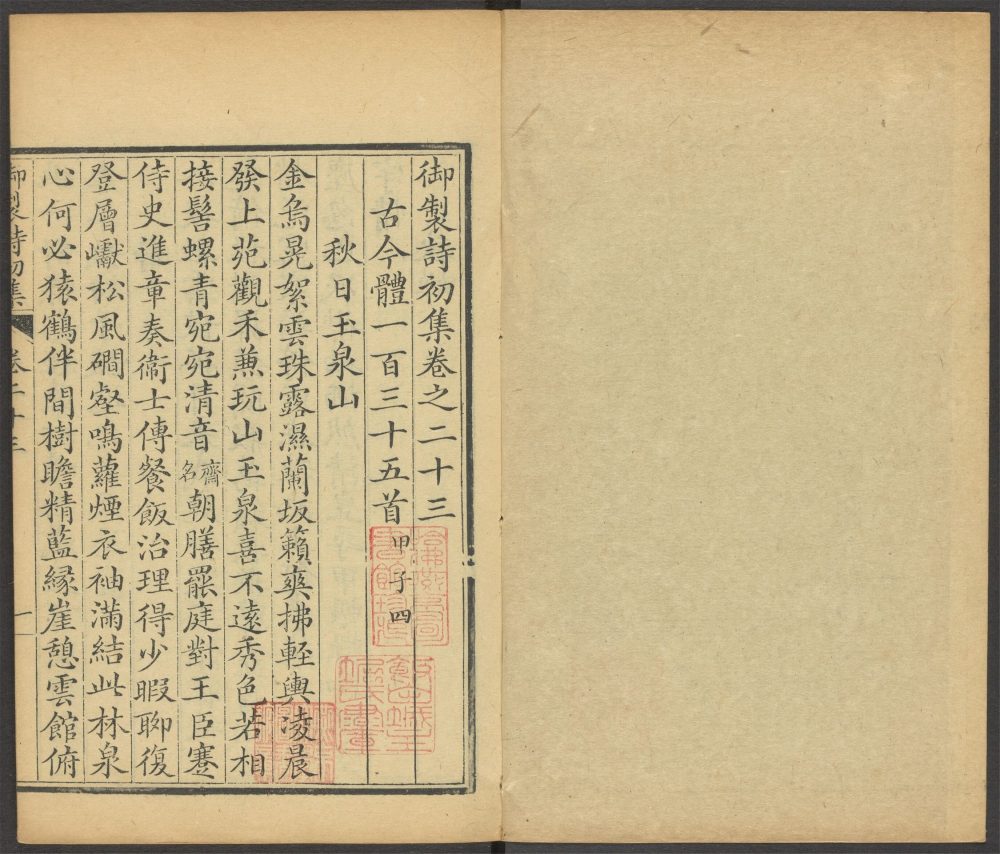 御製詩初集卷之二十三
古今體一百三十五首 甲子四
秋日玉泉山
金烏晃絮雲珠露濕蘭坂籟爽拂輕輿凌晨
發上苑觀禾兼玩山玉泉喜不遠秀色若相
接髻螺青宛宛清音齋名朝膳罷庭對王臣蹇
侍史進章奏衞士傳餐飯治理得少暇聊復
登層巘松風磵壑鳴蘿煙衣袖滿結此林泉
心何必猿鶴伴間樹瞻精藍緣崖憩雲館俯
御製詩初集 卷二十三 一